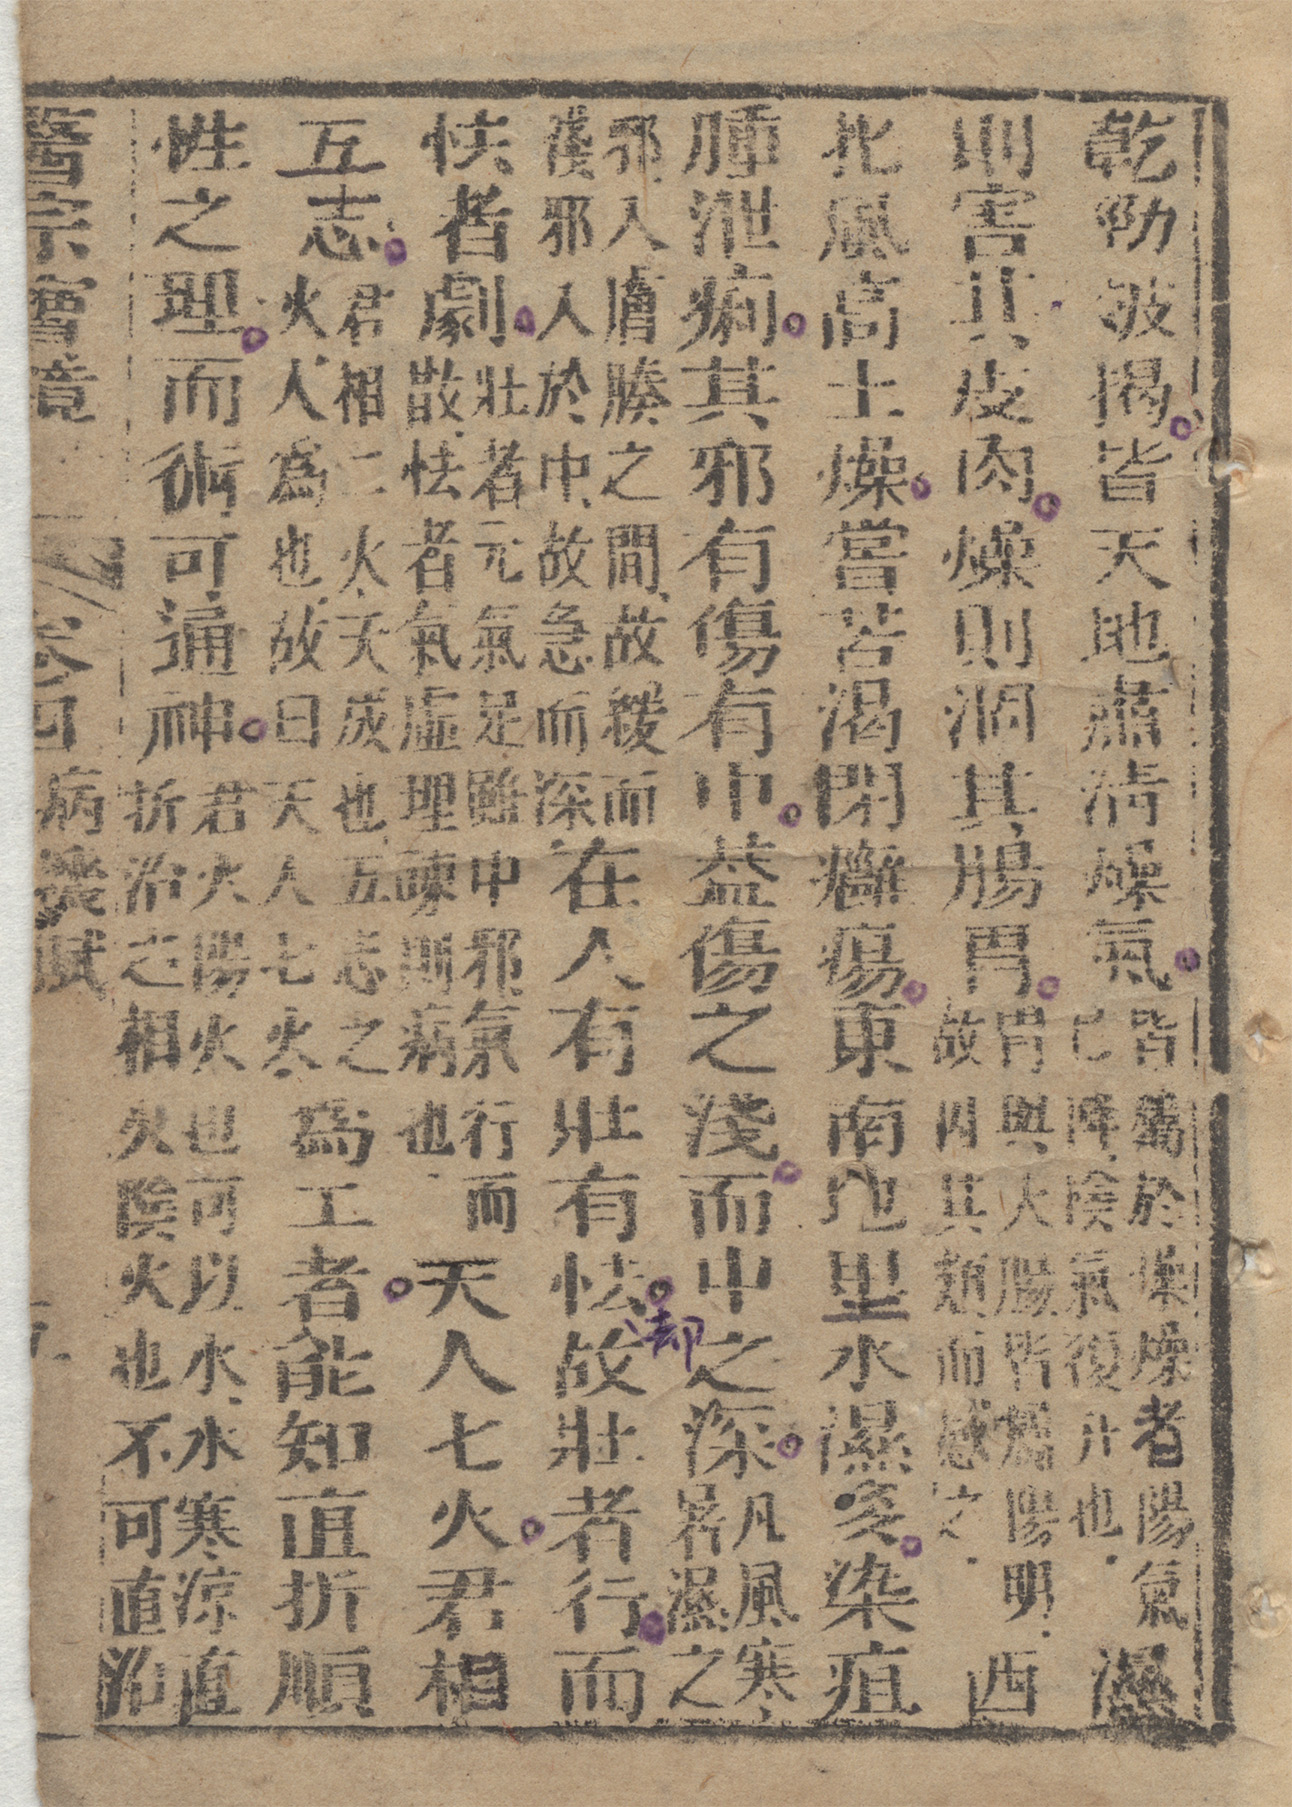 乾勁皴揭皆天地肅清燥氣皆屬於燥燥者陽氣已降陰氣復升也濕
則害其皮肉燥則涸其腸胃胃與大腸皆屬陽明故因其類而感之西
北風高土燥嘗苦渴閉癰瘍東南地卑水濕多染疽
腫泄痢其邪有傷有中益傷之淺而中之深凡風寒暑濕之
邪入膚腠之間故緩而淺邪入於中故急而深在人有壯有怯故壯者行而
怯者劇壯者元氣足雖中邪氣行而散怯者氣虛理疎則病也天人七火君相
五志君相二火天成也五志之火人為也故曰天人七火為工者能知直折順
性之理而術可通神君火陽火也可以水水寒涼直折治之相火陰火也不可直治
醫宗寶鏡 卷四 病機賦
却